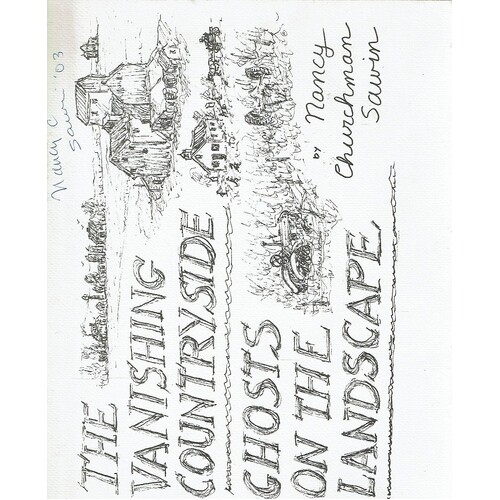 Nancy C.
Sawin '03
THE
VANISHING
COUNTRYSIDE
GHOSTS
ON THE
LANDSCAPE
BY Nancy
Churchman
Sawin